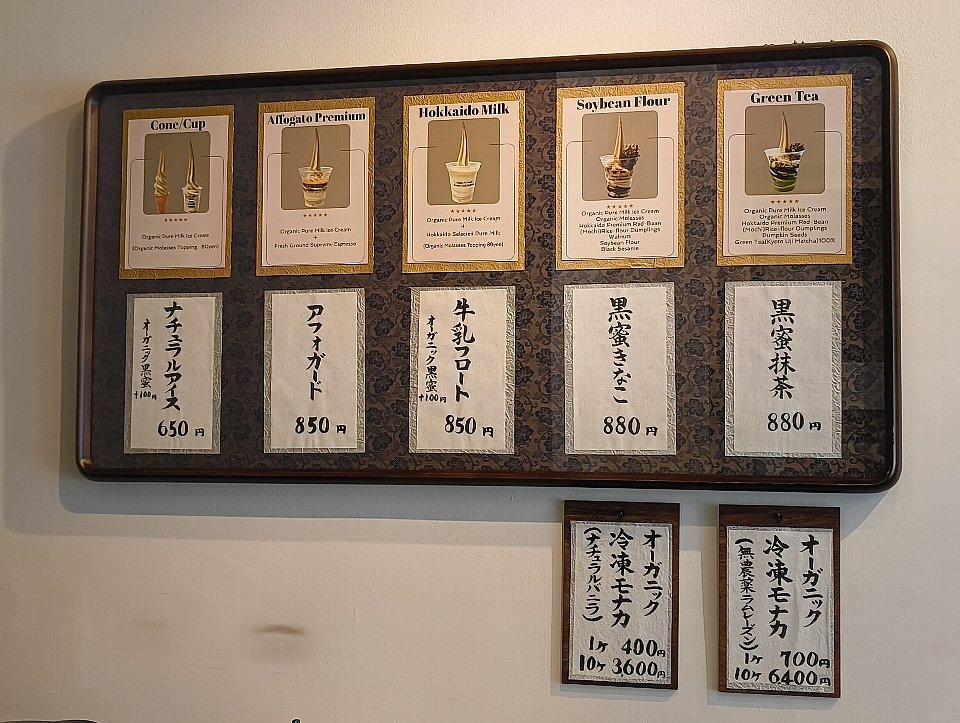 Cone/Cup
Organic Pure Milk Ice Cream
(Organic Molasses Topping 80yen)
Affogato Premium
Organic Pure Milk Ice Cream
+
Fresh Ground Supreme Espresso
Hokkaido Milk
Organic Pure Milk Ice Cream
+
Hokkaido Selected Pure Milk
(Organic Molasses Topping 80yen)
Soybean Flour
Organic Pure Milk Ice Cream
Organic Molasses
Hokkaido Premium Red-Bean
(Mochi)Rice-flour Dumplings
Walnuts
Soybean Flour
Black Sesame
Green Tea
Organic Pure Milk Ice Cream
Organic Molasses
Hokkaido Premium Red-Bean
(Mochi)Rice-flour Dumplings
Pumpkin Seeds
Green Tea(Kyoto Uji Matcha)100%
ナチュラルアイス
オーガニック黒蜜
+100円
650円
アフォガード
850円
牛乳フロート
オーガニック黒蜜
+100円
850円
黒蜜きなこ
880円
黒蜜抹茶
880円
オーガニック
冷凍モナカ
(ナチュラルバニラ)
1ヶ 400円
10ヶ 3,600円
オーガニック
冷凍モナカ
(無農薬ラムレーズン)
1ヶ 700円
10ヶ 6,400円